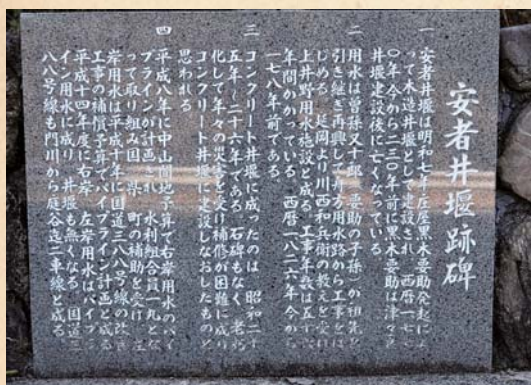 安者井堰跡碑
一 安者井堰は明和七年庄屋黒木要助発起によ
って木造井堰として建設され 西暦一七七
〇年 今から二三〇年前に黒木要助は
井堰建設後に亡くなっている
二 用水は曽孫又十郎 要助の子孫 が祖先を
引き継ぎ再興して 用水路から工事をは
じめる 延岡より川西和兵衛の教えを受け
上井野用水施設と成る 工事年数は五十六
年間かかっている 西暦一八二六年今から
一七八年前である
三 コンクリート井堰に成ったのは 昭和二十
五年～二十六年である 石碑もなく 老朽
化して年々の災害を受け補修が困難に成り
コンクリート井堰に建設しなおしたものと
思われる
四 平成八年に中山間地予算で右岸用水のパイ
プラインが計画され 水利組合員一丸と成
って取り組み国 県 町の補助を受け 左
岸用水は平成十年に国道三八八号線の改良
工事の補償予算でパイプライン計画と成る
平成十四年度に右岸 左岸用水はパイプラ
イン用水に成り 井堰も無くなる 国道三
八八号線も門川から庭谷迄二車線と成る